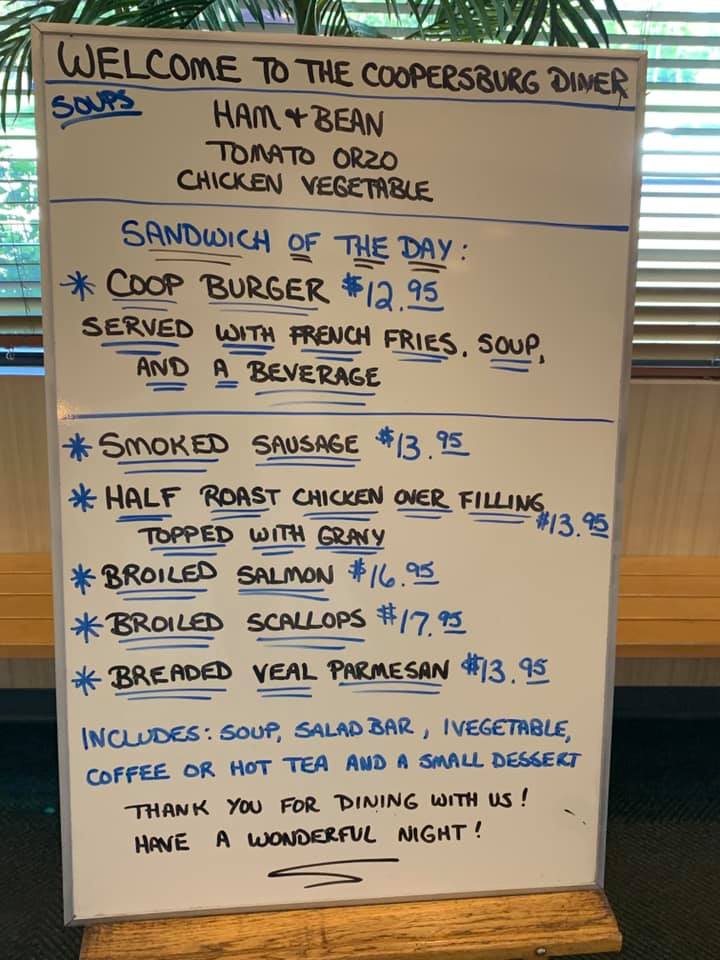 WELCOME TO THE COOPERSBURG DINER
SOUPS
HAM & BEAN
TOMATO ORZO
CHICKEN VEGETABLE
SANDWICH OF THE DAY:
* COOP BURGER $12.95
SERVED WITH FRENCH FRIES, SOUP,
AND A BEVERAGE
* SMOKED SAUSAGE $13.95
* HALF ROAST CHICKEN OVER FILLING
TOPPED WITH GRAVY $13.95
* BROILED SALMON $16.95
* BROILED SCALLOPS $17.95
* BREADED VEAL PARMESAN $13.95
INCLUDES: SOUP, SALAD BAR, 1 VEGETABLE,
COFFEE OR HOT TEA AND A SMALL DESSERT
THANK YOU FOR DINING WITH US!
HAVE A WONDERFUL NIGHT!